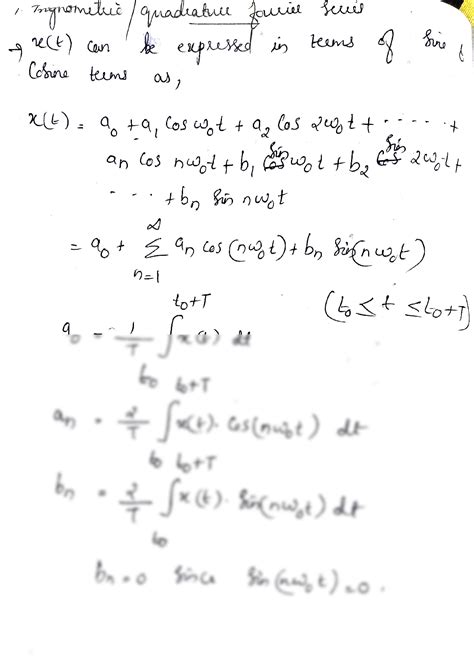 Trignometric / quadrature fourier series
→ x(t) can be expressed in terms of sine &
Cosine terms as,
x(t) = a₀ + a₁ cos ω₀t + a₂ cos 2ω₀t + ..... +
aₙ cos nω₀t + b₁ sin ω₀t + b₂ sin 2ω₀t +
... + bₙ sin nω₀t
= a₀ + ∑_{n=1}^{∞} aₙ cos(nω₀t) + bₙ sin(nω₀t)
(t₀ ≤ t ≤ t₀+T)
a₀ = 1/T ∫_{t₀}^{t₀+T} x(t) dt
aₙ = 2/T ∫_{t₀}^{t₀+T} x(t). cos(nω₀t) dt
bₙ = 2/T ∫_{t₀}^{t₀+T} x(t). sin(nω₀t) dt
bₙ = 0 since sin(nω₀t) = 0.